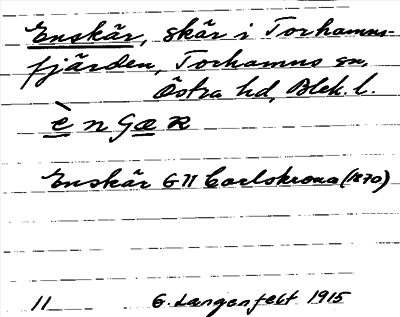 Enskär, skär i Torhamns-
fjärden, Torhamns sn,
Östra hd, Blek. l.
è n g æ R
Enskär G II Carlskrona (1870)
11 G. Langenfelt 1915